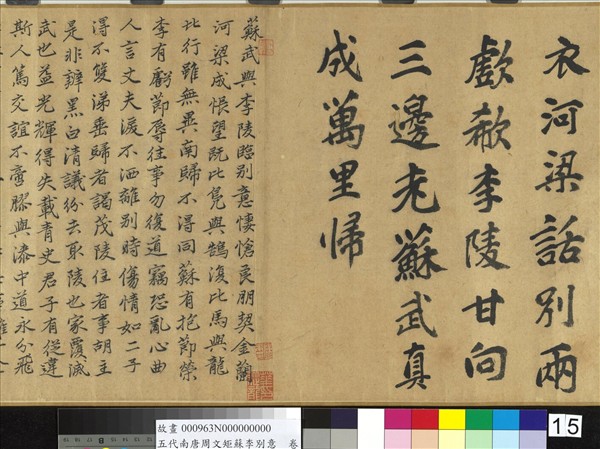 衣河梁話別兩
歔欷李陵甘向
三邊老蘇武真
成萬里歸
蘇武與李陵臨別意悽愴良朋契金蘭
河梁成悵望既比鳧與鵠復比馬與龍
比行雖無異南歸不得同蘇有抱節榮
李有虧節辱往事勿復道竊恐亂心曲
人言丈夫淚不洒離別時傷情如二子
得不雙涕垂歸者謁茂陵住者事胡主
是非辯黑白清議紛去取陵也家覆滅
武也益光輝得失載青史君子有從違
斯人篤交誼不啻膠與漆中道永分飛
故畫 000963N000000000
五代南唐周文矩蘇李別意 卷
15